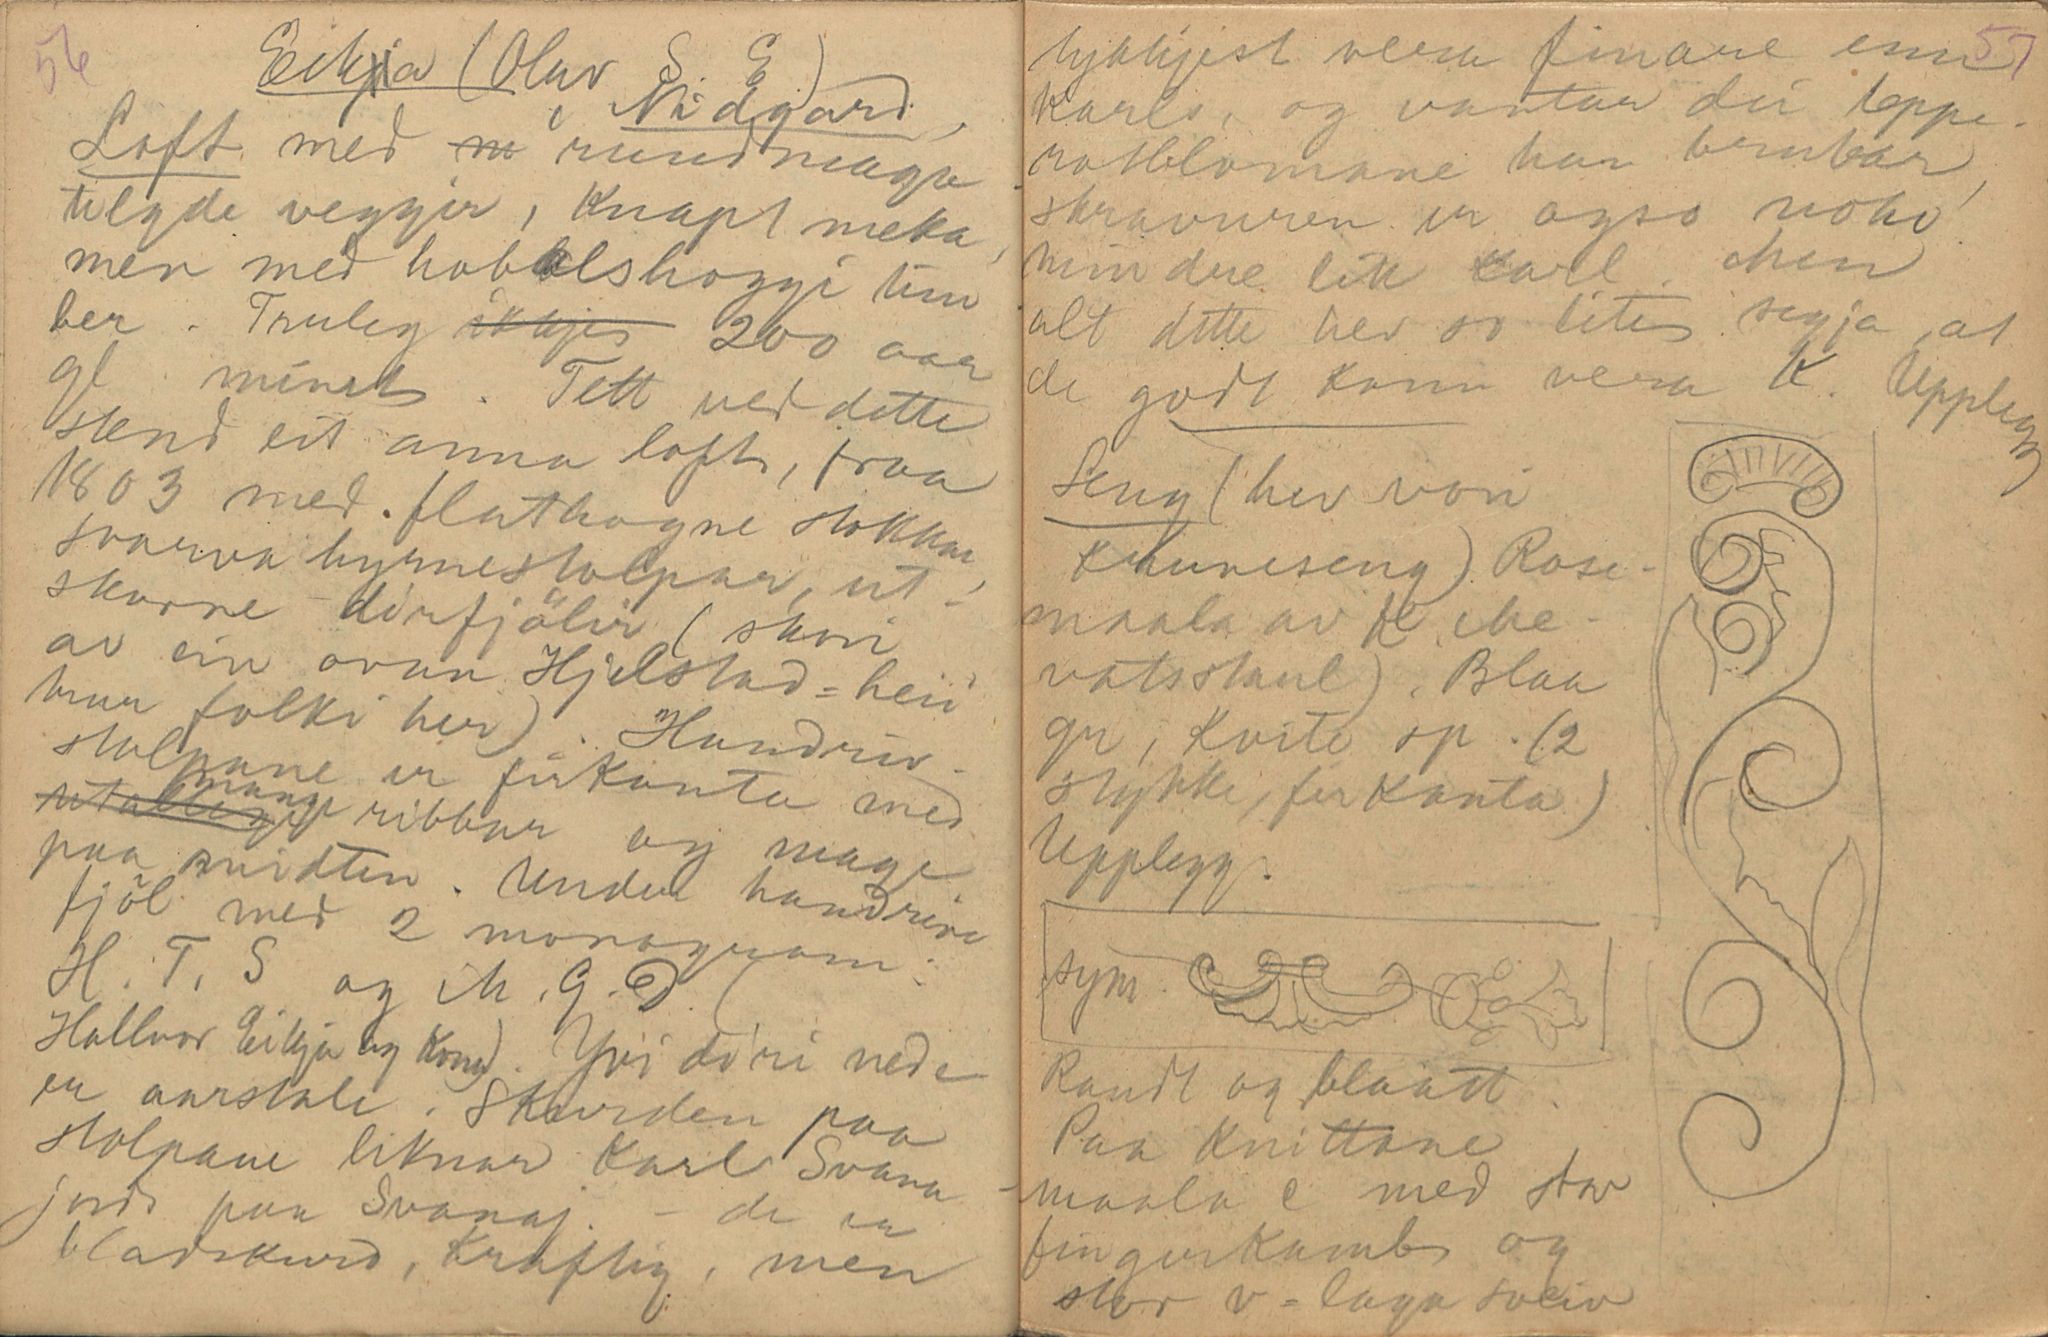 56
Eikja (Olav S. E)
i Nidgard,
Loft med m rundmaga
telgde veggjir, knapt meka,
men med hoblshoggi tim
ber. Truleg ikkje 200 aar
gl minst. Tett ved dette
stend eit anna loft, fraa
1803 med flathogne stokkar,
svarva hyrnestolpar, ut-
skorne dirfjölir (skori
av ein ovan Hjelstad-heii
trur folki her). Handriv-
stolpane er firkanta med
utallige mange ribbur og mage
paa midten. Under handrive
fjöl med 2 monogram:
H. T. S og M. G. D. (
Hallvor Eikja og Kona). Yvi döri nede
er aarstale. Skurden paa
stolpane liknar Karl Svana
jords paa Svanaj. - de er
bladskurd, kraftig, men
57
tykkjest vera finare enn
Karls, og vantar dei teppe-
rotblomane han brukar,
skravuren er ogso noko
mindre lik Karl. Men
alt dette hev so lite segja at
de godt kann vera K. Upplegg
Seng (hev vori
kruneseng) Rose-
maala av K. Me-
vatsstaul). Blaa
gr, kvite sp. (2
stykke, firkanta)
Upplegg.
sym.
Raudt og blaatt.
Paa knittane
maala C med stor
fingerkamb og
stor v-laga sveiv